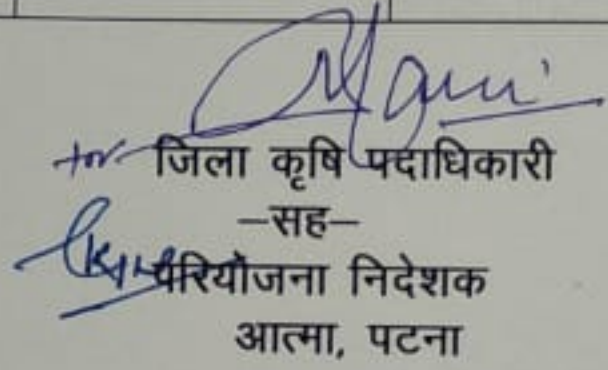 for जिला कृषि पदाधिकारी
–सह–
परियोजना निदेशक
आत्मा, पटना